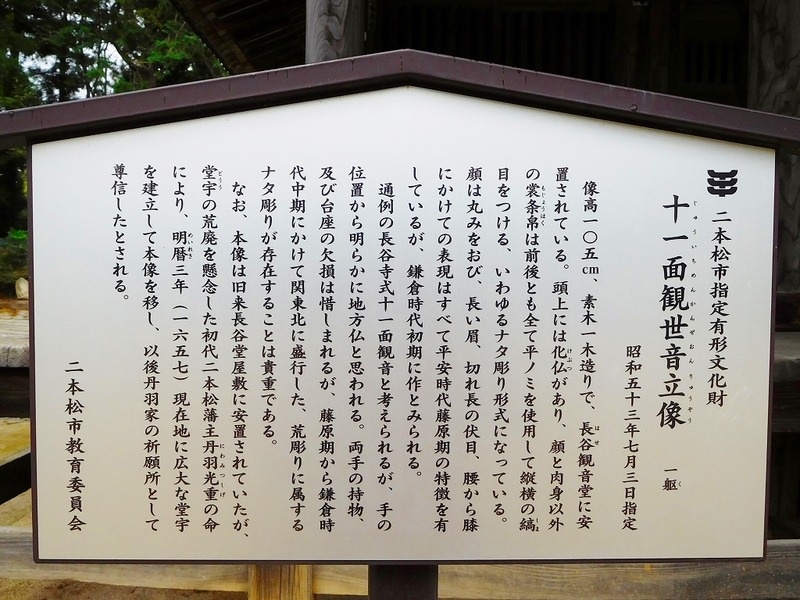 二本松市指定有形文化財
十一面観世音立像 一躯
じゅういちめんかんぜおんりゅうぞう く
昭和五十三年七月三日指定
像高一〇五cm、素木一木造りで、長谷観音堂に安
置されている。頭上には化仏があり、顔と肉身以外
の裳条帛は前後とも全て平ノミを使用して縦横の縞
目をつける、いわゆるナタ彫り形式になっている。
顔は丸みをおび、長い眉、切れ長の伏目、腰から膝
にかけての表現はすべて平安時代藤原期の特徴を有
しているが、鎌倉時代初期に作とみられる。
通例の長谷寺式十一面観音と考えられるが、手の
位置から明らかに地方仏と思われる。両手の持物、
及び台座の欠損は惜しまれるが、藤原期から鎌倉時
代中期にかけて関東北に盛行した、荒彫りに属する
ナタ彫りが存在することは貴重である。
なお、本像は旧来長谷堂屋敷に安置されていたが、
堂宇の荒廃を懸念した初代二本松藩主丹羽光重の命
により、明暦三年（一六五七）現在地に広大な堂宇
を建立して本像を移し、以後丹羽家の祈願所として
尊信したとされる。
二本松市教育委員会